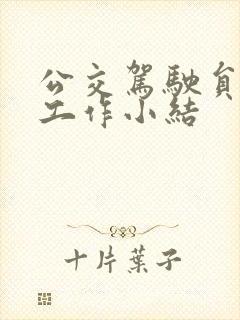 公交駕駛員
工作小結
十片葉子